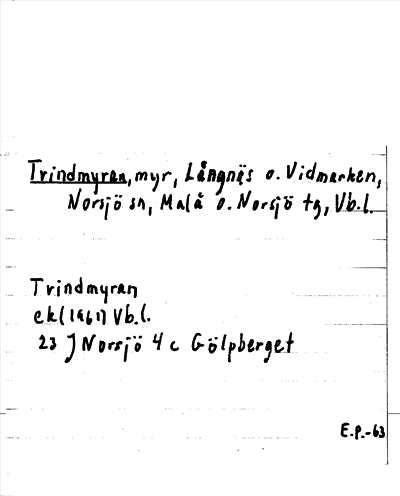 Trindmyran, myr, Långnäs o. Vidmarken,
Norsjö sn, Malå o. Norsjö tg, Vb.l.
Trindmyran
ek(1961) Vb.l.
23 J Norsjö 4 c Gölpberget
E.P.-63